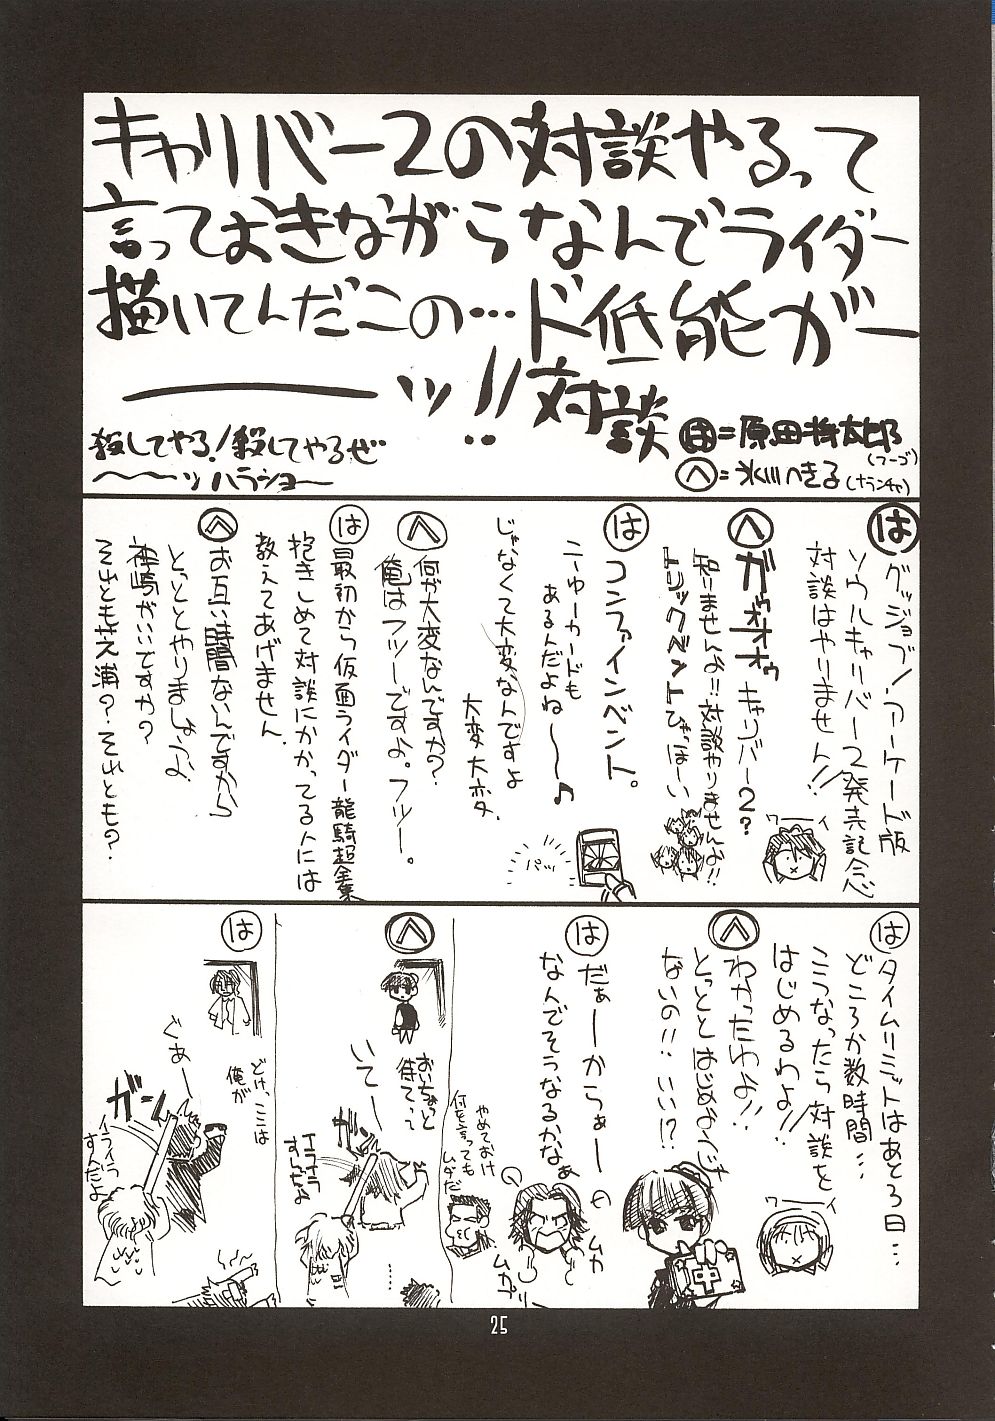 キャリバー2の対談やるって
言っておきながらなんでライダー
描いてんだこの…ド低能がー
ーーーッ!!
対談
殺してやる!殺してやるぜ
〜〜ッハラショー
は=原田将太郎
(フーゴ)
へ=氷川へきる(ナランチャ)
は
グッジョブ!アーケード版
ソウルキャリバー2発売記念
対談はやりません!!
ワーイ
へ
ガゥオオオゥ キャリバー2?
知りませんよ!!対談やりませんよ!!
トリックベントひゃほーい
は
コンファインベント。
ニューカードも
あるんだよね〜〜♪
パッ
じゃなくて大変なんですよ
大変大変
へ
何が大変なんですか?
俺はフツーですよ。フツー。
は
最初から仮面ライダー龍騎超全集
抱きしめて対談にかかってる人には
教えてあげません。
へ
お互い時間ないんですから
とっととやりましょうよ
神崎がいいですか?
それとも芝浦?それとも?
は
タイムリミットはあと3日…
どころか数時間…
こうなったら対談を
はじめるわよ!!
ワーイ
へ
わかったわよ!!
とっととはじめようじゃ
ないの!!いい!?
中
は
だぁーからぁー
なんでそうなるかなぁ
ムカ
ムカ
やめておけ
何を言っても
ムダだ
へ
おいちょっと
待てって
いてー
ガン
イライラ
すんだよ
は
どけ、ここは
俺が
ぐあー
ガン
イライラ
すんだよ
25